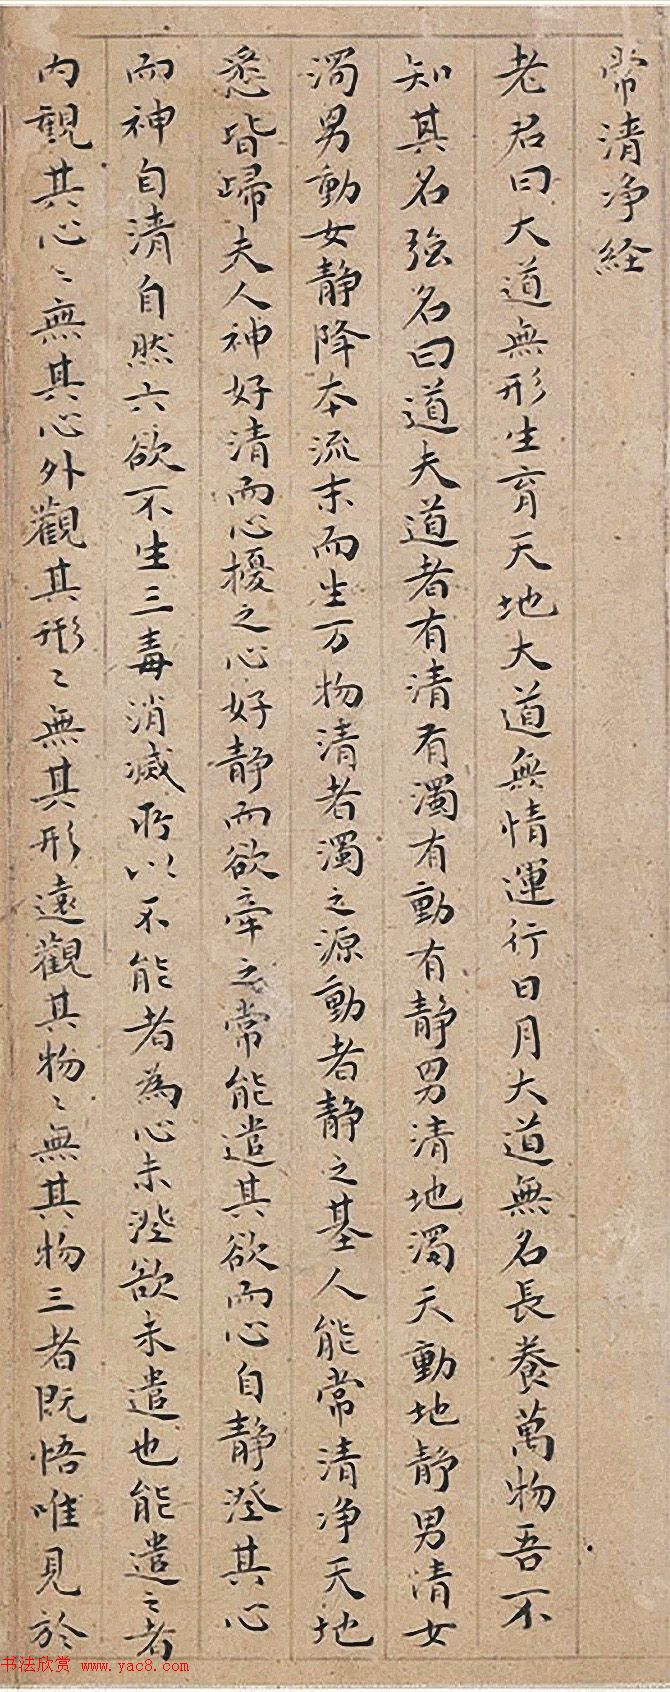 常清净经
老君曰大道無形生育天地大道無情運行日月大道無名長養萬物吾不
知其名强名曰道夫道者有清有濁有動有静男清地濁天動地静男清女
濁男動女静降本流末而生万物清者濁之源動者静之基人能常清净天地
悉皆歸夫人神好清而心擾之心好静而欲牽之常能遣其欲而心自静澄其心
而神自清自然六欲不生三毒消滅所以不能者為心未澄欲未遣也能遣之者
内觀其心〻無其心外觀其形〻無其形遠觀其物〻無其物三者既悟唯見於
书法欣赏 www.yac8.com